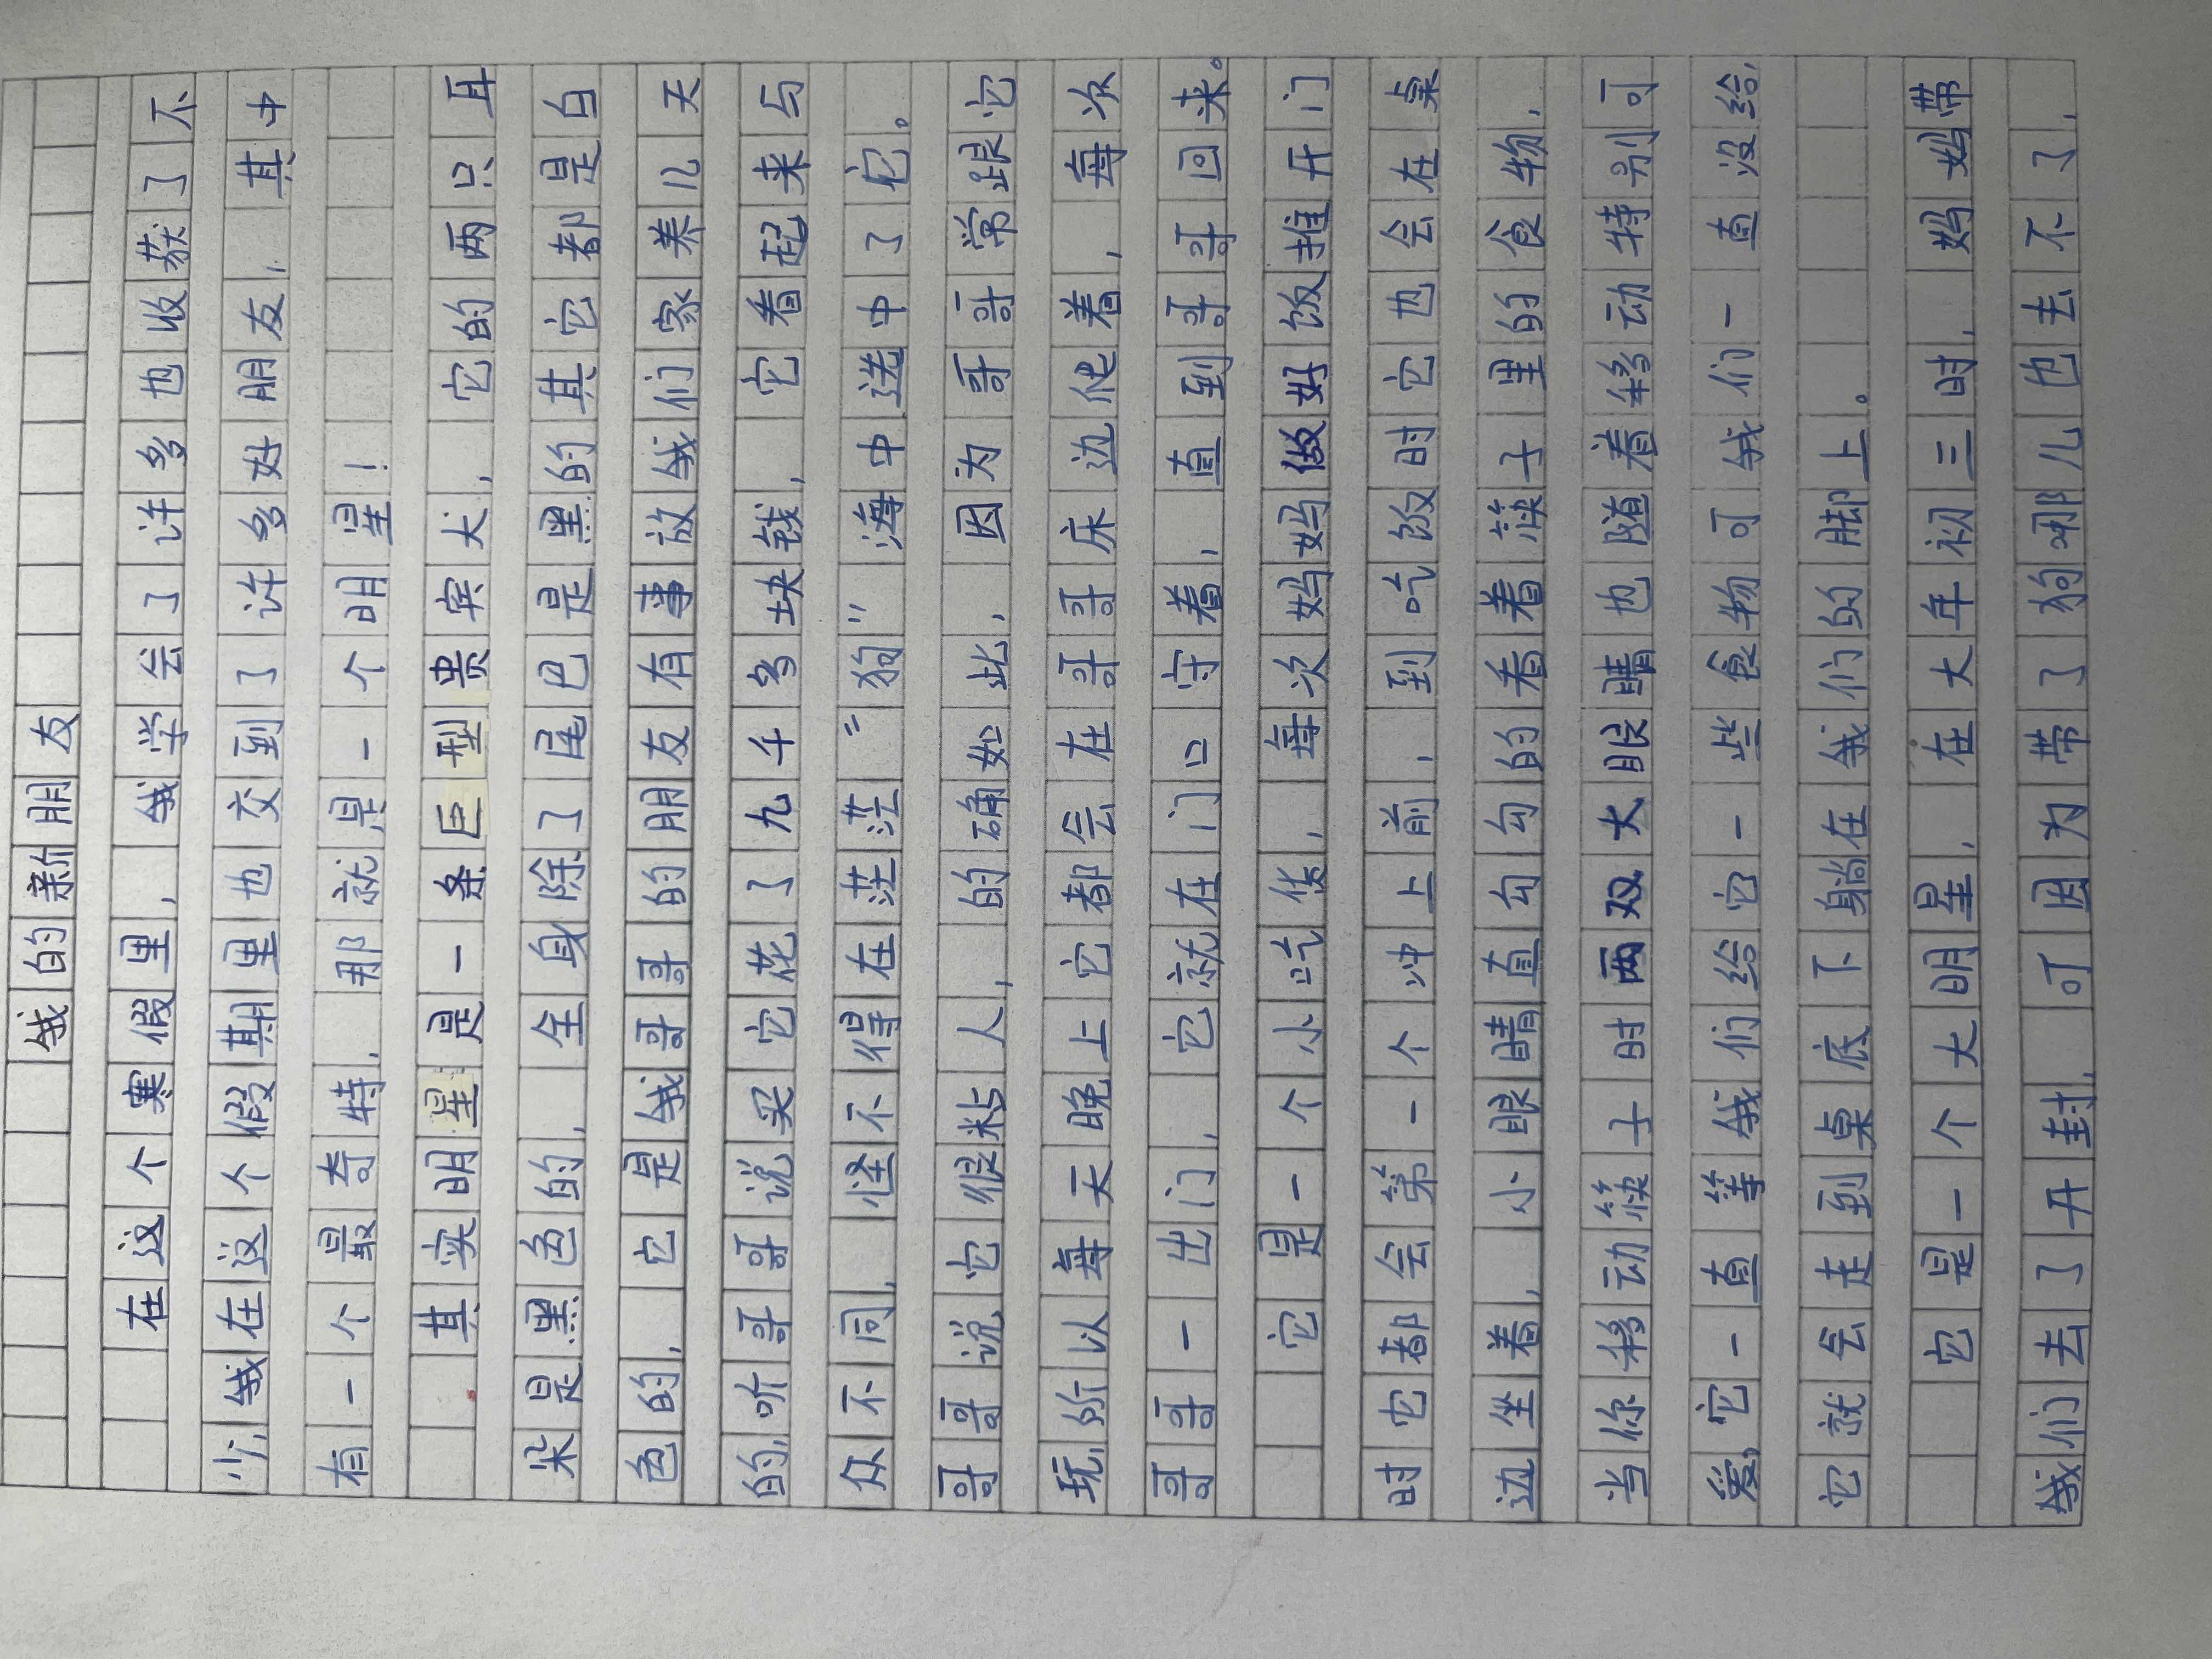 我的新朋友
在这个寒假里，我学会了许多也收获了不
少，我在这个假期里也交到了许多好朋友，其中
有一个最奇特，那就是一个明星！
其实明星是一条巨型贵宾犬，它的两只耳
朵是黑色的，全身除了尾巴是黑的其它都是白
色的，它是我哥哥的朋友有事放我们家养几天
的，听哥哥说买它花了九千多块钱，它看起来与
众不同，怪不得在茫茫“狗”海中选中了它。
哥哥说它很粘人，的确如此，因为哥哥常跟它
玩，所以每天晚上它都会在哥哥床边爬着，每次
哥哥一出门，它就在门口守着，直到哥哥回来。
它是一个小吃货，每次妈妈做好饭推开门
时它都会第一个冲上前，到吃饭时它也会在桌
边坐着，小眼睛直勾勾的看着筷子里的食物，
当你移动筷子时两双大眼睛也随着移动特别可
爱，它一直等我们给它一些食物可我们一直没给，
它就会走到桌底下躺在我们的脚上。
它是一个大明星，在大年初三时，妈妈带
我们去了开封，可因为带了狗哪儿也去不了，